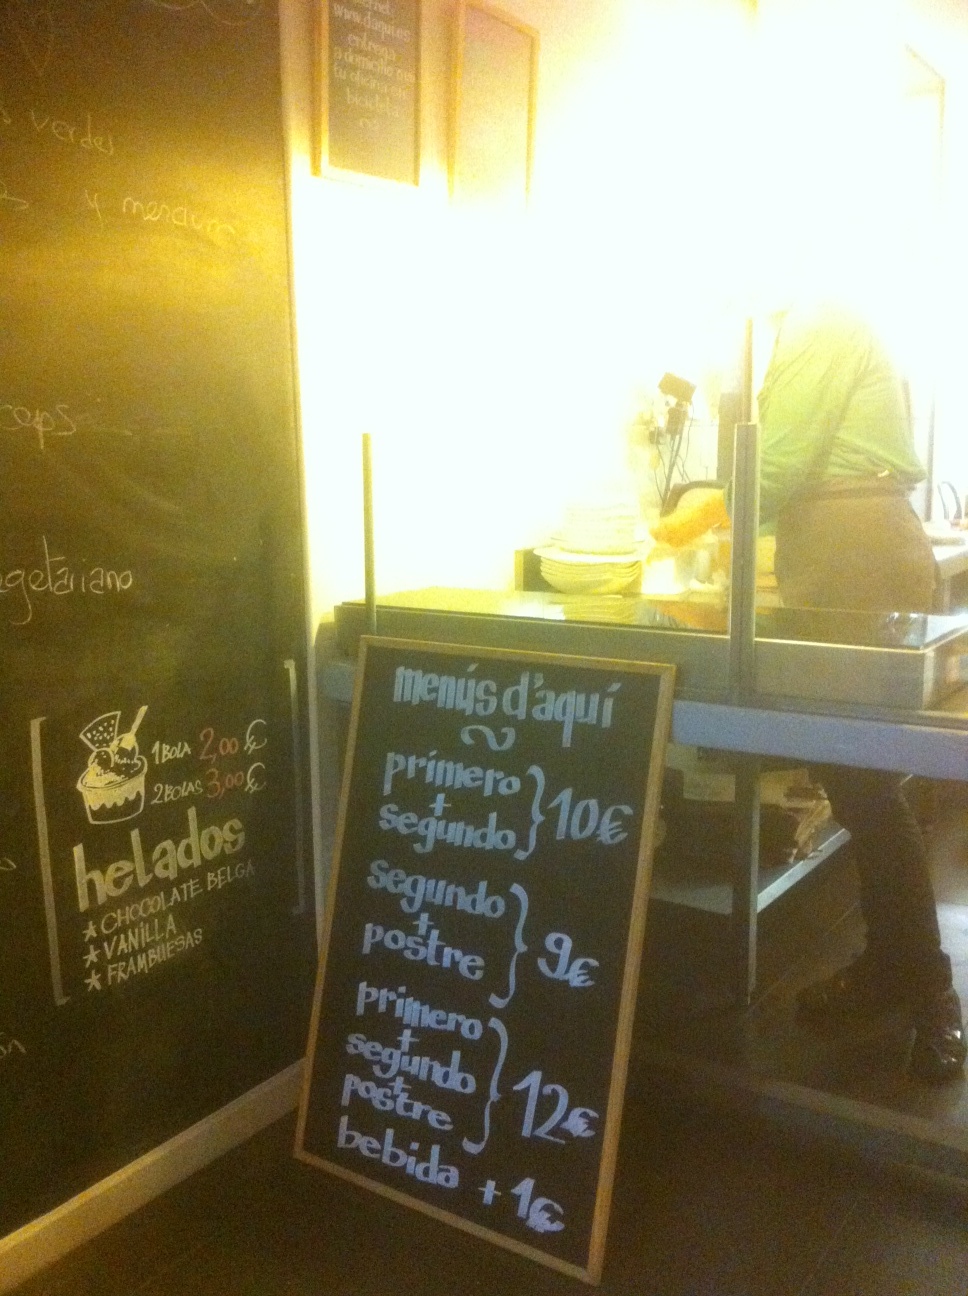 www.daqui.es
entrega
a domicilio
bicicleta
verdes
y
ceps
vegetariano
1 BOLA 2,00 €
2 BOLAS 3,00 €
helados
★ CHOCOLATE BELGA
★ VANILLA
★ FRAMBUESAS
menús d'aquí
primero
+
segundo } 10€
segundo
+
postre } 9€
primero
+
segundo
+
postre } 12€
bebida + 1€